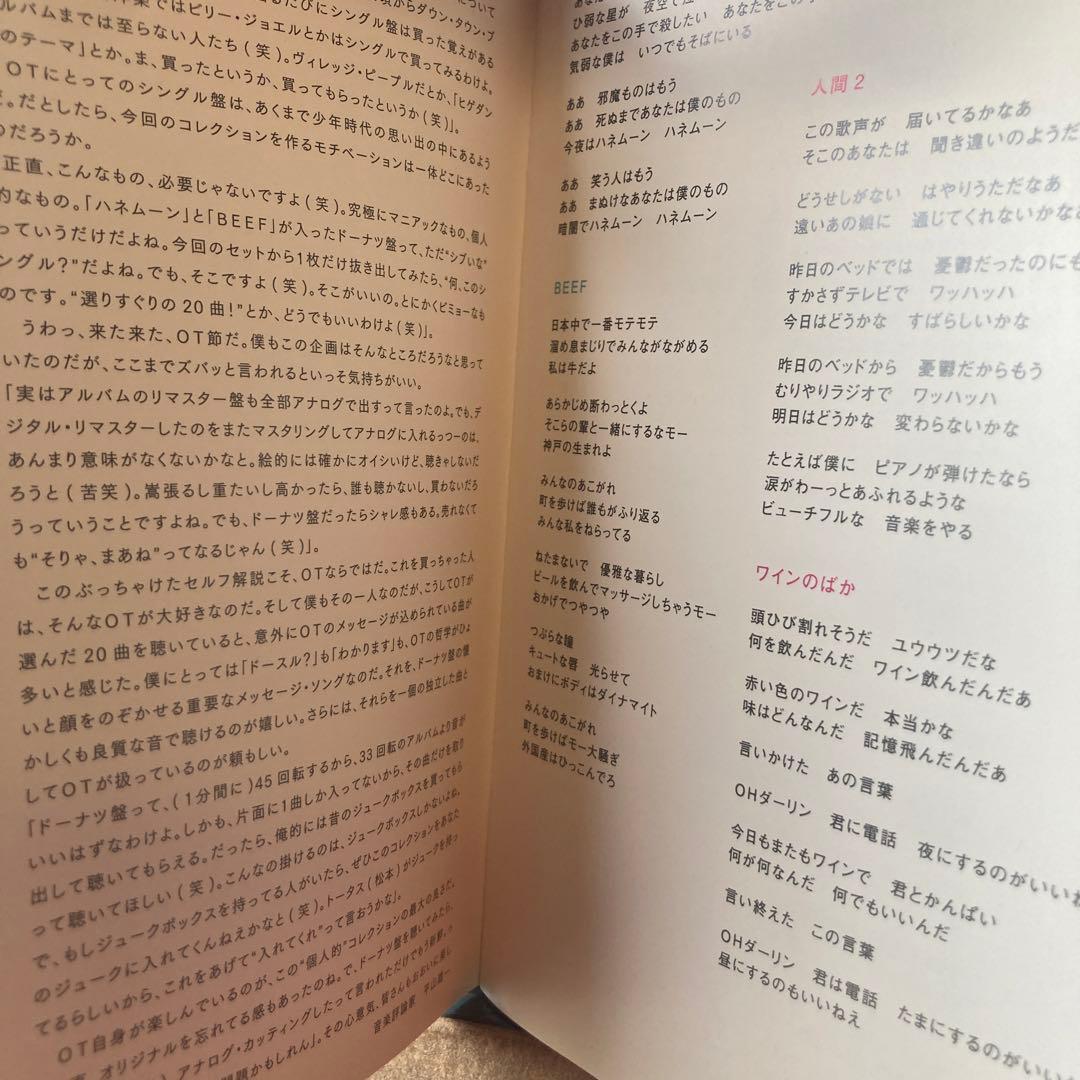 について
るたびにシングル盤は買った覚えがある
頃からダウン・タウン・ブ
洋楽ではビリー・ジョエルとかはシングルで買ってみるわけよ。
ルバムまでは至らない人たち（笑）。ヴィレッジ・ピープルだとか、「ヒゲダン
のテーマ」とか。ま、買ったというか、買ってもらったというか（笑）」。
OTにとってのシングル盤は、あくまで少年時代の思い出の中にあるよう
だ。だとしたら、今回のコレクションを作るモチベーションは一体どこにあった
のだろうか。
正直、こんなもの、必要じゃないですよ（笑）。究極にマニアックなもの、個人
的なもの。「ハネムーン」と「BEEF」が入ったドーナツ盤って、ただ“シブいな”
っていうだけだよね。今回のセットから1枚だけ抜き出してみたら、“何、このシ
ングル？”だよね。でも、そこですよ（笑）。そこがいいの。とにかくビミョーなも
のです。“選りすぐりの20曲！”とか、どうでもいいわけよ（笑）」。
うわっ、来た来た、OT節だ。僕もこの企画はそんなところだろうなと思って
いたのだが、ここまでズバッと言われるといっそ気持ちがいい。
「実はアルバムのリマスター盤も全部アナログで出すって言ったのよ。でも、デ
ジタル・リマスターしたのをまたマスタリングしてアナログに入れるっつーのは、
あんまり意味がなくないかなと。絵的には確かにオイシいけど、聴きゃしないだ
ろうと（苦笑）。嵩張るし重たいし高かったら、誰も聴かないし、買わないだろ
うっていうことですよね。でも、ドーナツ盤だったらシャレ感もある。売れなくて
も“そりゃ、まあね”ってなるじゃん（笑）」。
このぶっちゃけたセルフ解説こそ、OTならではだ。これを買っちゃった人
は、そんなOTが大好きなのだ。そして僕もその一人なのだが、こうしてOTが
選んだ20曲を聴いていると、意外にOTのメッセージが込められている曲が
多いと感じた。僕にとっては「ドースル？」も「わかります」も、OTの哲学がひょ
いと顔をのぞかせる重要なメッセージ・ソングなのだ。それを、ドーナツ盤の懐
かしくも良質な音で聴けるのが嬉しい。さらには、それらを一個の独立した曲と
してOTが扱っているのが頼もしい。
「ドーナツ盤って、（1分間に）45回転するから、33回転のアルバムより音が
いいはずなわけよ。しかも、片面に1曲しか入ってないから、その曲だけを取り
出して聴いてもらえる。だったら、俺的には昔のジュークボックスを買ってもら
って聴いてほしい（笑）。こんなの掛けるのは、ジュークボックスしかないよね。
で、もしジュークボックスを持ってる人がいたら、ぜひこのコレクションをあなた
のジュークに入れてくんねえかなと（笑）。トータス（松本）がジュークを持っ
てるらしいから、これをあげて“入れてくれ”って言おうかな」。
OT自身が楽しんでいるのが、この“個人的”コレクションの最大の良さだ。
オリジナルを忘れてる感もあったのね。で、ドーナツ盤を聴いてみたら、
アナログ・カッティングしたって言われただけでもう新鮮。っ
問題かもしれん」。その心意気、皆さんもおおいに楽し
音楽評論家　平山雄一
ひ弱な星が　夜空で
あなたをこの手で殺したい　あなたをこの手
気弱な僕は　いつでもそばにいる
ああ　邪魔ものはもう
ああ　死ぬまであなたは僕のもの
今夜はハネムーン　ハネムーン
ああ　笑う人はもう
ああ　まぬけなあなたは僕のもの
暗闇でハネムーン　ハネムーン
BEEF
日本中で一番モテモテ
溜め息まじりでみんながながめる
私は牛だよ
あらかじめ断わっとくよ
そこらの輩と一緒にするなモー
神戸の生まれよ
みんなのあこがれ
町を歩けば誰もがふり返る
みんな私をねらってる
ねたまないで　優雅な暮らし
ビールを飲んでマッサージしちゃうモー
おかげでつやつや
つぶらな瞳
キュートな唇　光らせて
おまけにボディはダイナマイト
みんなのあこがれ
町を歩けばモー大騒ぎ
外国産はひっこんでろ
人間2
この歌声が　届いてるかなあ
そこのあなたは　聞き違いのようだ
どうせしがない　はやりうただなあ
遠いあの娘に　通じてくれないかなあ
昨日のベッドでは　憂鬱だったのにも
すかさずテレビで　ワッハッハ
今日はどうかな　すばらしいかな
昨日のベッドから　憂鬱だからもう
むりやりラジオで　ワッハッハ
明日はどうかな　変わらないかな
たとえば僕に　ピアノが弾けたなら
涙がわーっとあふれるような
ビューチフルな　音楽をやる
ワインのばか
頭ひび割れそうだ　ユウウツだな
何を飲んだんだ　ワイン飲んだんだあ
赤い色のワインだ　本当かな
味はどんなんだ　記憶飛んだんだあ
言いかけた　あの言葉
OHダーリン　君に電話　夜にするのがいいね
今日もまたもワインで　君とかんぱい
何が何なんだ　何でもいいんだ
言い終えた　この言葉
OHダーリン　君は電話　たまにするのがいい
昼にするのもいいねえ